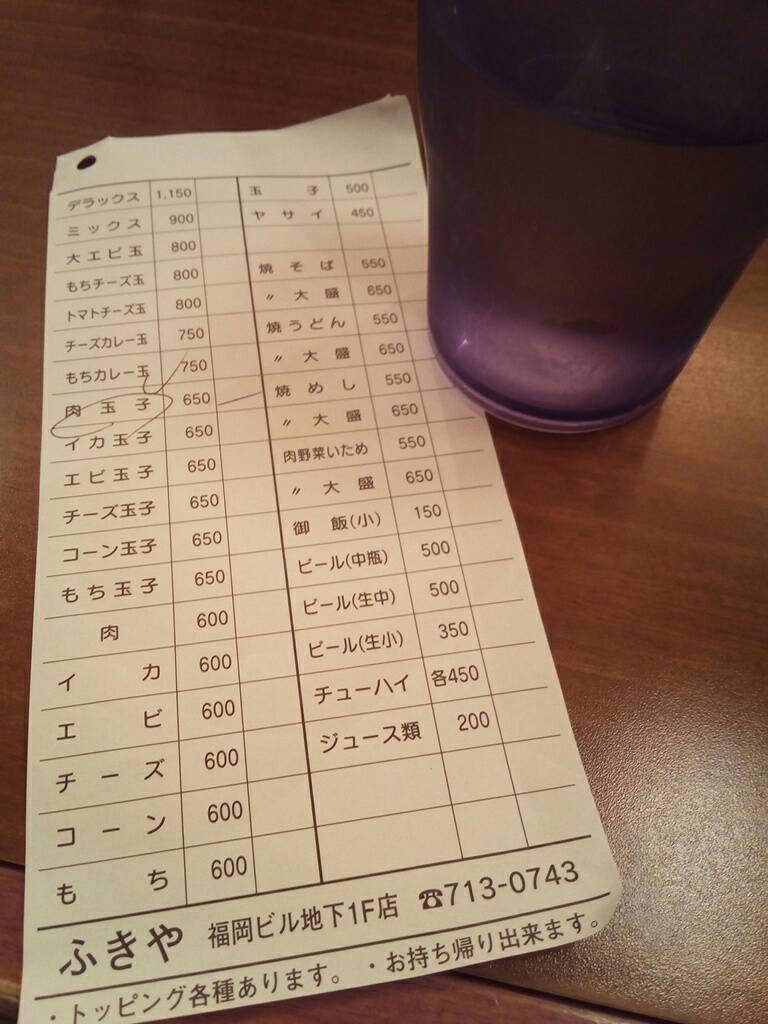 デラックス 1,150
ミックス 900
大エビ玉 800
もちチーズ玉 800
トマトチーズ玉 800
チーズカレー玉 750
もちカレー玉 750
肉玉子 650
イカ玉子 650
エビ玉子 650
チーズ玉子 650
コーン玉子 650
もち玉子 650
肉 600
イカ 600
エビ 600
チーズ 600
コーン 600
もち 600
玉子 500
ヤサイ 450
焼そば 550
〃大盛 650
焼うどん 550
〃大盛 650
焼めし 550
〃大盛 650
肉野菜いため 550
〃大盛 650
御飯(小) 150
ビール(中瓶) 500
ビール(生中) 500
ビール(生小) 350
チューハイ 各450
ジュース類 200
ふきや 福岡ビル地下1F店 ☎713-0743
・トッピング各種あります。・お持ち帰り出来ます。